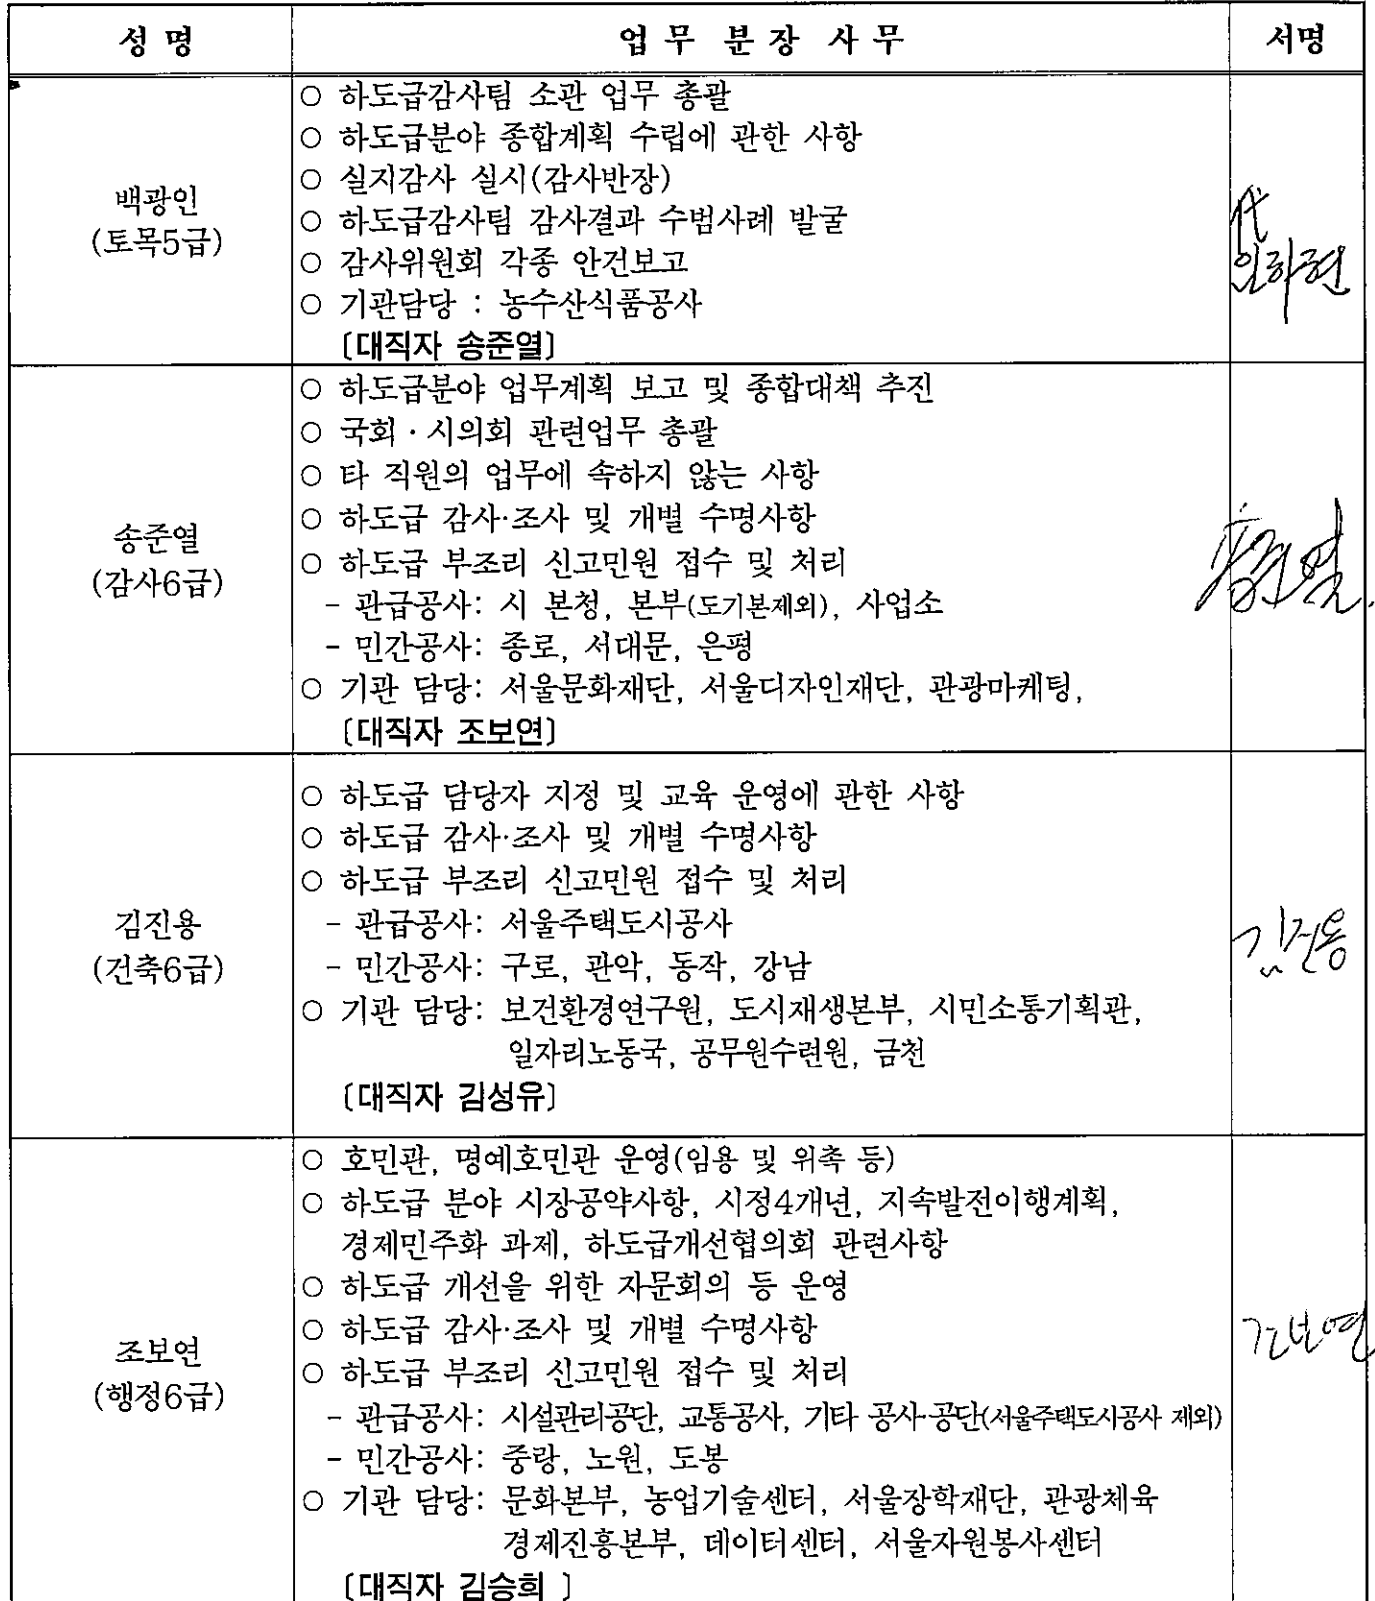 성 명 업 무 분 장 사 무 서명
백광인
(토목5급)
○ 하도급감사팀 소관 업무 총괄
○ 하도급분야 종합계획 수립에 관한 사항
○ 실지감사 실시(감사반장)
○ 하도급감사팀 감사결과 수범사례 발굴
○ 감사위원회 각종 안건보고
○ 기관담당 : 농수산식품공사
〔대직자 송준열〕
代
송준열
(감사6급)
○ 하도급분야 업무계획 보고 및 종합대책 추진
○ 국회 · 시의회 관련업무 총괄
○ 타 직원의 업무에 속하지 않는 사항
○ 하도급 감사·조사 및 개별 수명사항
○ 하도급 부조리 신고민원 접수 및 처리
- 관급공사: 시 본청, 본부(도기본제외), 사업소
- 민간공사: 종로, 서대문, 은평
○ 기관 담당: 서울문화재단, 서울디자인재단, 관광마케팅,
〔대직자 조보연〕
김진용
(건축6급)
○ 하도급 담당자 지정 및 교육 운영에 관한 사항
○ 하도급 감사·조사 및 개별 수명사항
○ 하도급 부조리 신고민원 접수 및 처리
- 관급공사: 서울주택도시공사
- 민간공사: 구로, 관악, 동작, 강남
○ 기관 담당: 보건환경연구원, 도시재생본부, 시민소통기획관,
일자리노동국, 공무원수련원, 금천
〔대직자 김성유〕
김진용
조보연
(행정6급)
○ 호민관, 명예호민관 운영(임용 및 위촉 등)
○ 하도급 분야 시장공약사항, 시정4개년, 지속발전이행계획,
경제민주화 과제, 하도급개선협의회 관련사항
○ 하도급 개선을 위한 자문회의 등 운영
○ 하도급 감사·조사 및 개별 수명사항
○ 하도급 부조리 신고민원 접수 및 처리
- 관급공사: 시설관리공단, 교통공사, 기타 공사·공단(서울주택도시공사 제외)
- 민간공사: 중랑, 노원, 도봉
○ 기관 담당: 문화본부, 농업기술센터, 서울장학재단, 관광체육
경제진흥본부, 데이터센터, 서울자원봉사센터
〔대직자 김승희 〕
조보연